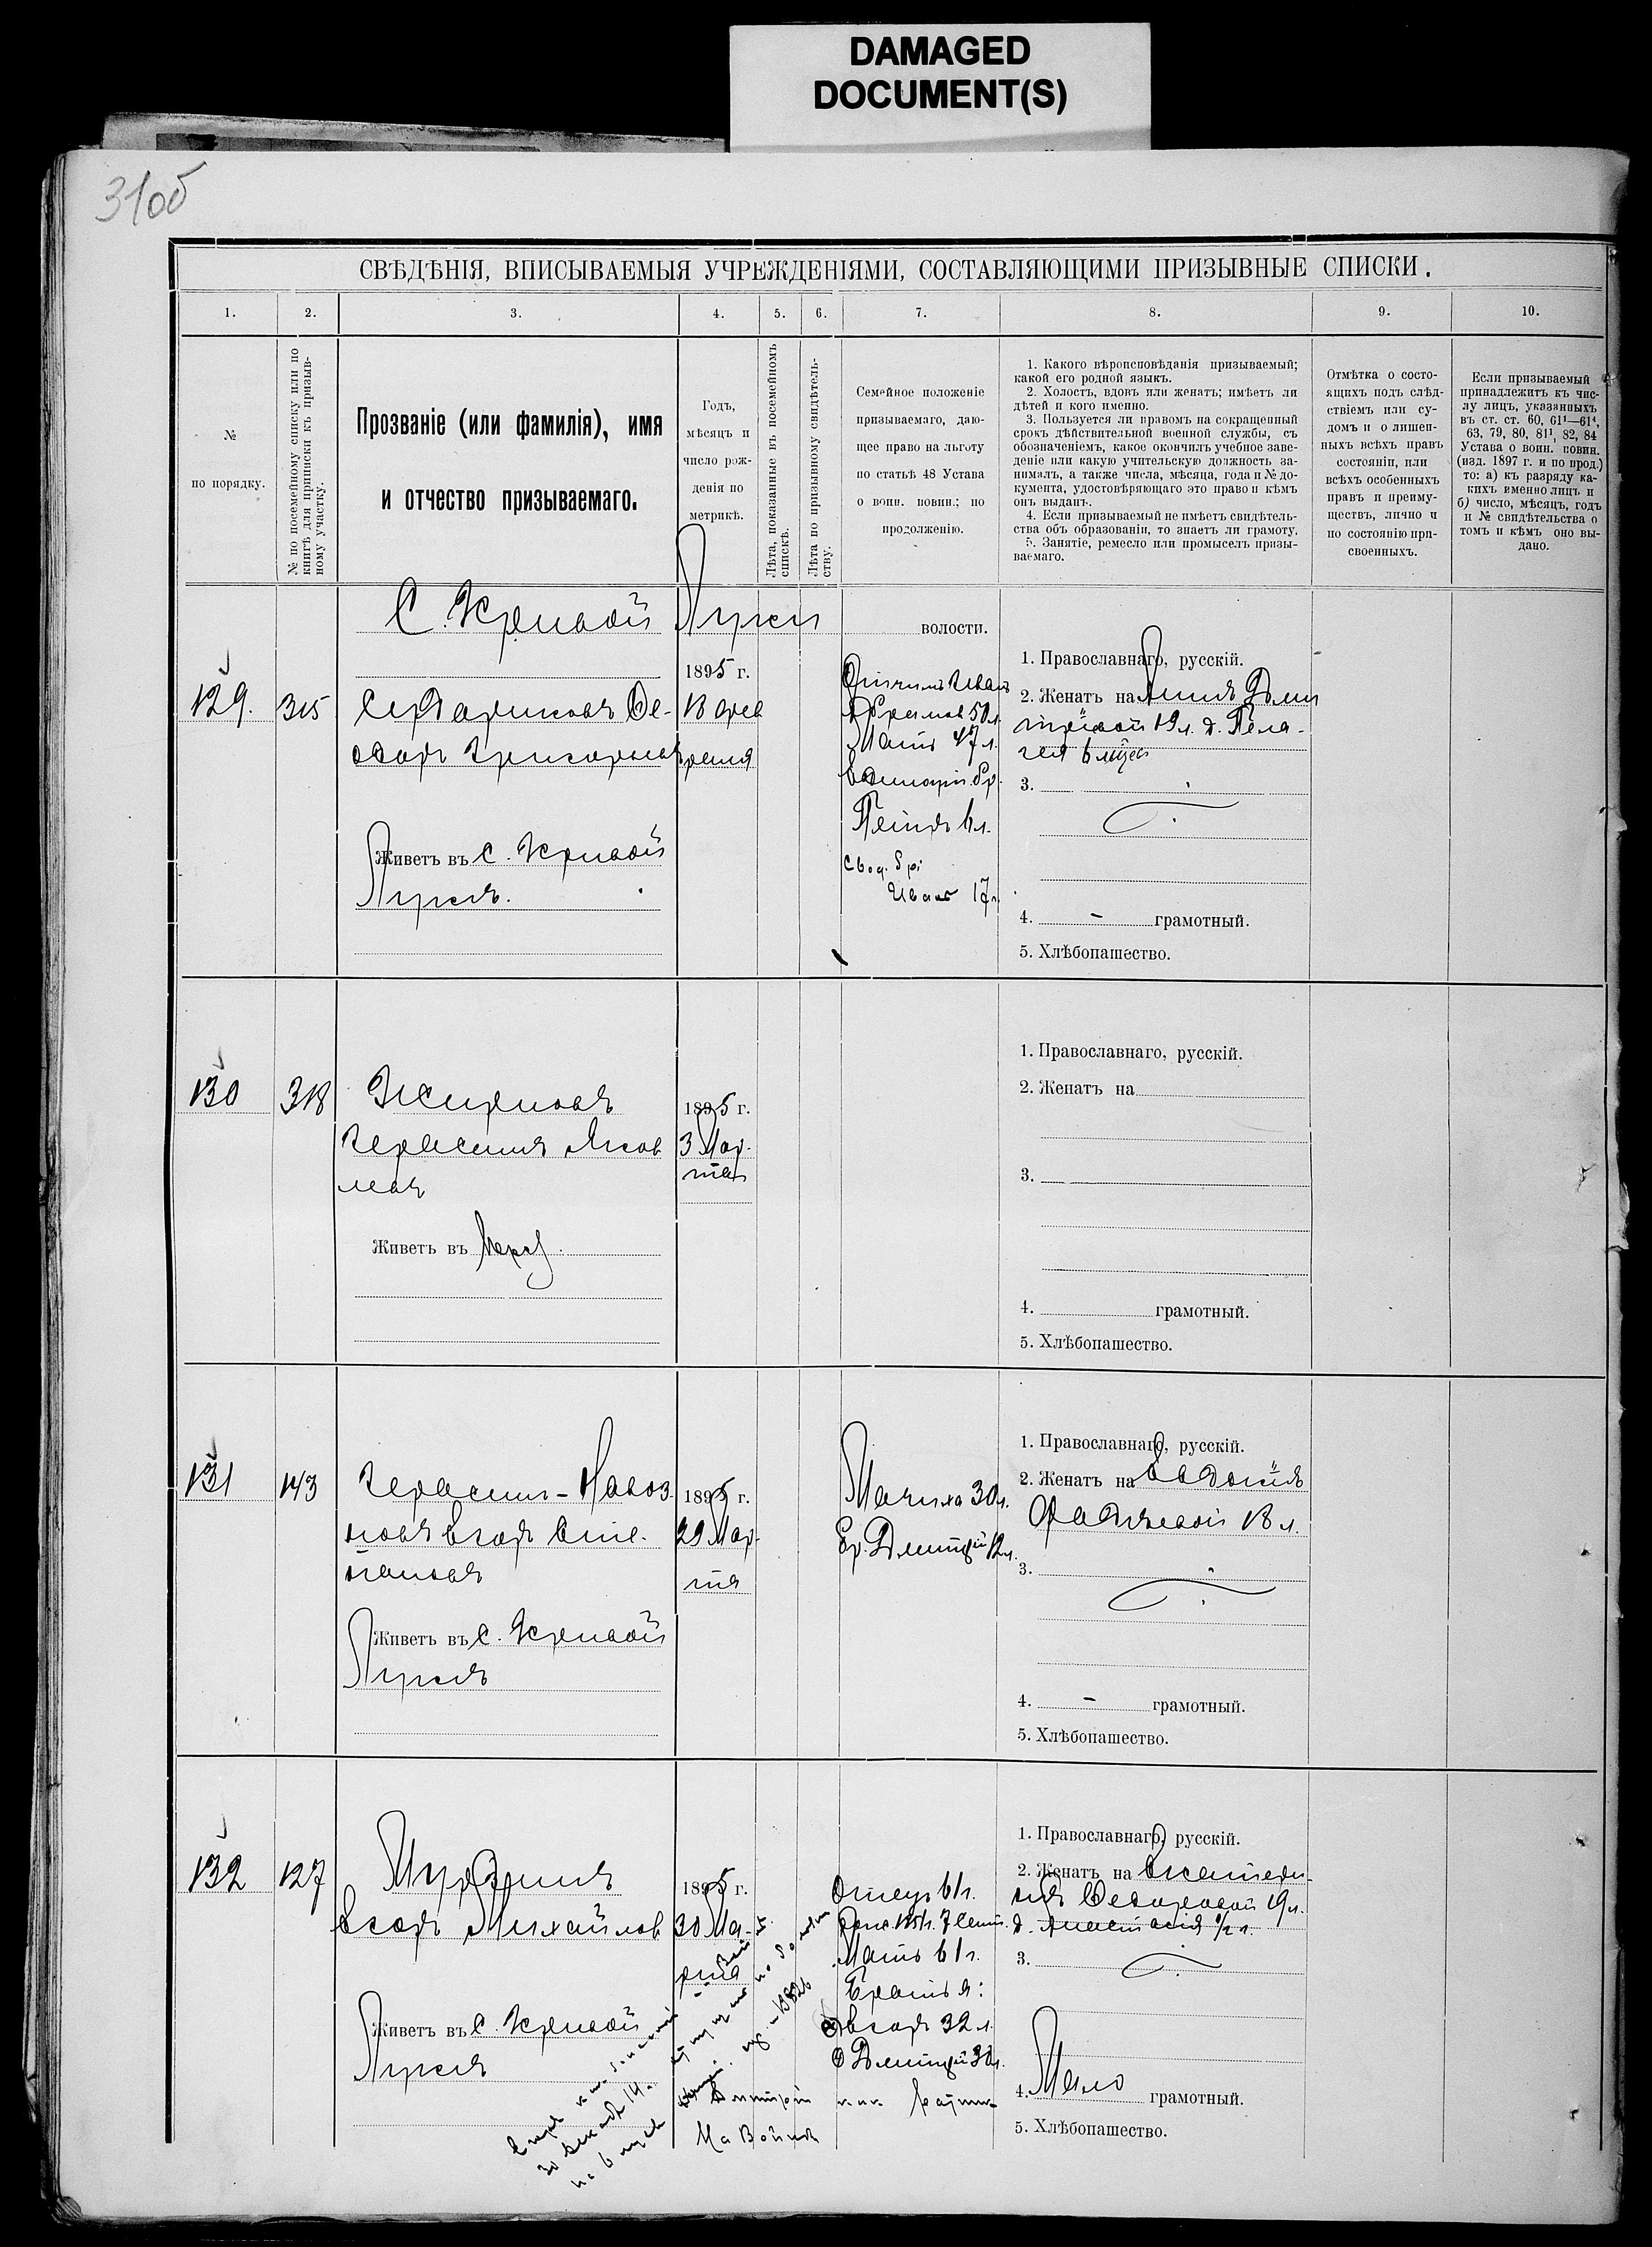 DAMAGED
DOCUMENT(S)
31об
СВѢДѢНІЯ, ВПИСЫВАЕМЫЯ УЧРЕЖДЕНІЯМИ, СОСТАВЛЯЮЩИМИ ПРИЗЫВНЫЕ СПИСКИ.
1. 2. 3. 4. 5. 6. 7. 8. 9. 10.
№
по порядку.
№ по посемейному списку или по
книгѣ для приписки къ призыв-
ному участку.
Прозваніе (или фамилія), имя
и отчество призываемаго.
Годъ,
мѣсяцъ и
число рож-
денія по
метрикѣ.
Лѣта, показанные въ посемейномъ
спискѣ.
Лѣта по призывному свидѣтель-
ству.
Семейное положеніе
призываемаго, даю-
щее право на льготу
по статьѣ 48 Устава
о воин. повин.; но
продолженію.
1. Какого вѣроисповѣданія призываемый;
какой его родной языкъ.
2. Холостъ, вдовъ или женатъ; имѣетъ ли
дѣтей и кого именно.
3. Пользуется ли правомъ на сокращенный
срокъ дѣйствительной военной службы, съ
обозначеніемъ, какое окончилъ учебное заве-
деніе или какую учительскую должность за-
нималъ, а также числа, мѣсяца, года и № до-
кумента, удостовѣряющаго это право и кѣмъ
онъ выданъ.
4. Если призываемый не имѣетъ свидѣтель-
ства объ образованіи, то знаетъ ли грамоту.
5. Занятіе, ремесло или промыселъ призы-
ваемаго.
Отмѣтка о состо-
ящихъ подъ слѣд-
ствіемъ или су-
домъ и о лишен-
ныхъ всѣхъ правъ
состоянія, или
всѣхъ особенныхъ
правъ и преиму-
ществъ, лично и
по состоянію при-
своенныхъ.
Если призываемый
принадлежитъ къ чис-
лу лицъ, указанныхъ
въ ст. ст. 60, 61¹—61⁴,
63, 79, 80, 81¹, 82, 84
Устава о воин. повин.
(изд. 1897 г. и по прод.)
то: а) къ разряду ка-
кихъ именно лицъ и
б) число, мѣсяцъ, годъ
и № свидѣтельства о
томъ и кѣмъ оно вы-
дано.
С. Кривой Луки
волости.
129. 315
Ѳе-
доръ Григорьевъ
1895 г.
18 Фев
раля
Отчимъ Иванъ
Абрамов 50 л.
Мать 47 л.
Единоутр. бр.
Петръ 6 л.
Свод. бр:
Иван 17 л.
1. Православнаго, русскій.
2. Женатъ на Аннѣ Дми
тріевой 19 л. д. Пела-
гея 6 мцев
3.
4. – грамотный.
5. Хлѣбопашество.
Живетъ въ с. Кривой
Лукѣ.
130 318
Жириковъ
Герасимъ Яков
левъ
1895 г.
3 Мар-
та
Живетъ въ
1. Православнаго, русскій.
2. Женатъ на
3.
4. грамотный.
5. Хлѣбопашество.
131 143
Герасим-Навоз
новъ Егоръ Сте-
пановъ
1895 г.
29 Мар-
та
Мачиха 30 л.
Бр. Дмитрій 12 л.
1. Православнаго, русскій.
2. Женатъ на Евдокіѣ
Фадѣевой 18 л.
3.
4. – грамотный.
5. Хлѣбопашество.
Живетъ въ с. Кривой
Лукѣ
132 127
Егоръ Михайлов
1895 г.
30 Ма-
рта
Отецъ 61 г.
Мать 61 г.
Братья:
Егоръ 32 л.
Дмитрій 30 л.
1. Православнаго, русскій.
2. Женатъ на Екатери-
нѣ Ѳедоровой 19 л.
д. Анастасія ½ г.
3.
4. Мало грамотный.
5. Хлѣбопашество.
Живетъ въ с. Кривой
Лукѣ
Дмитрій
На Войнѣ